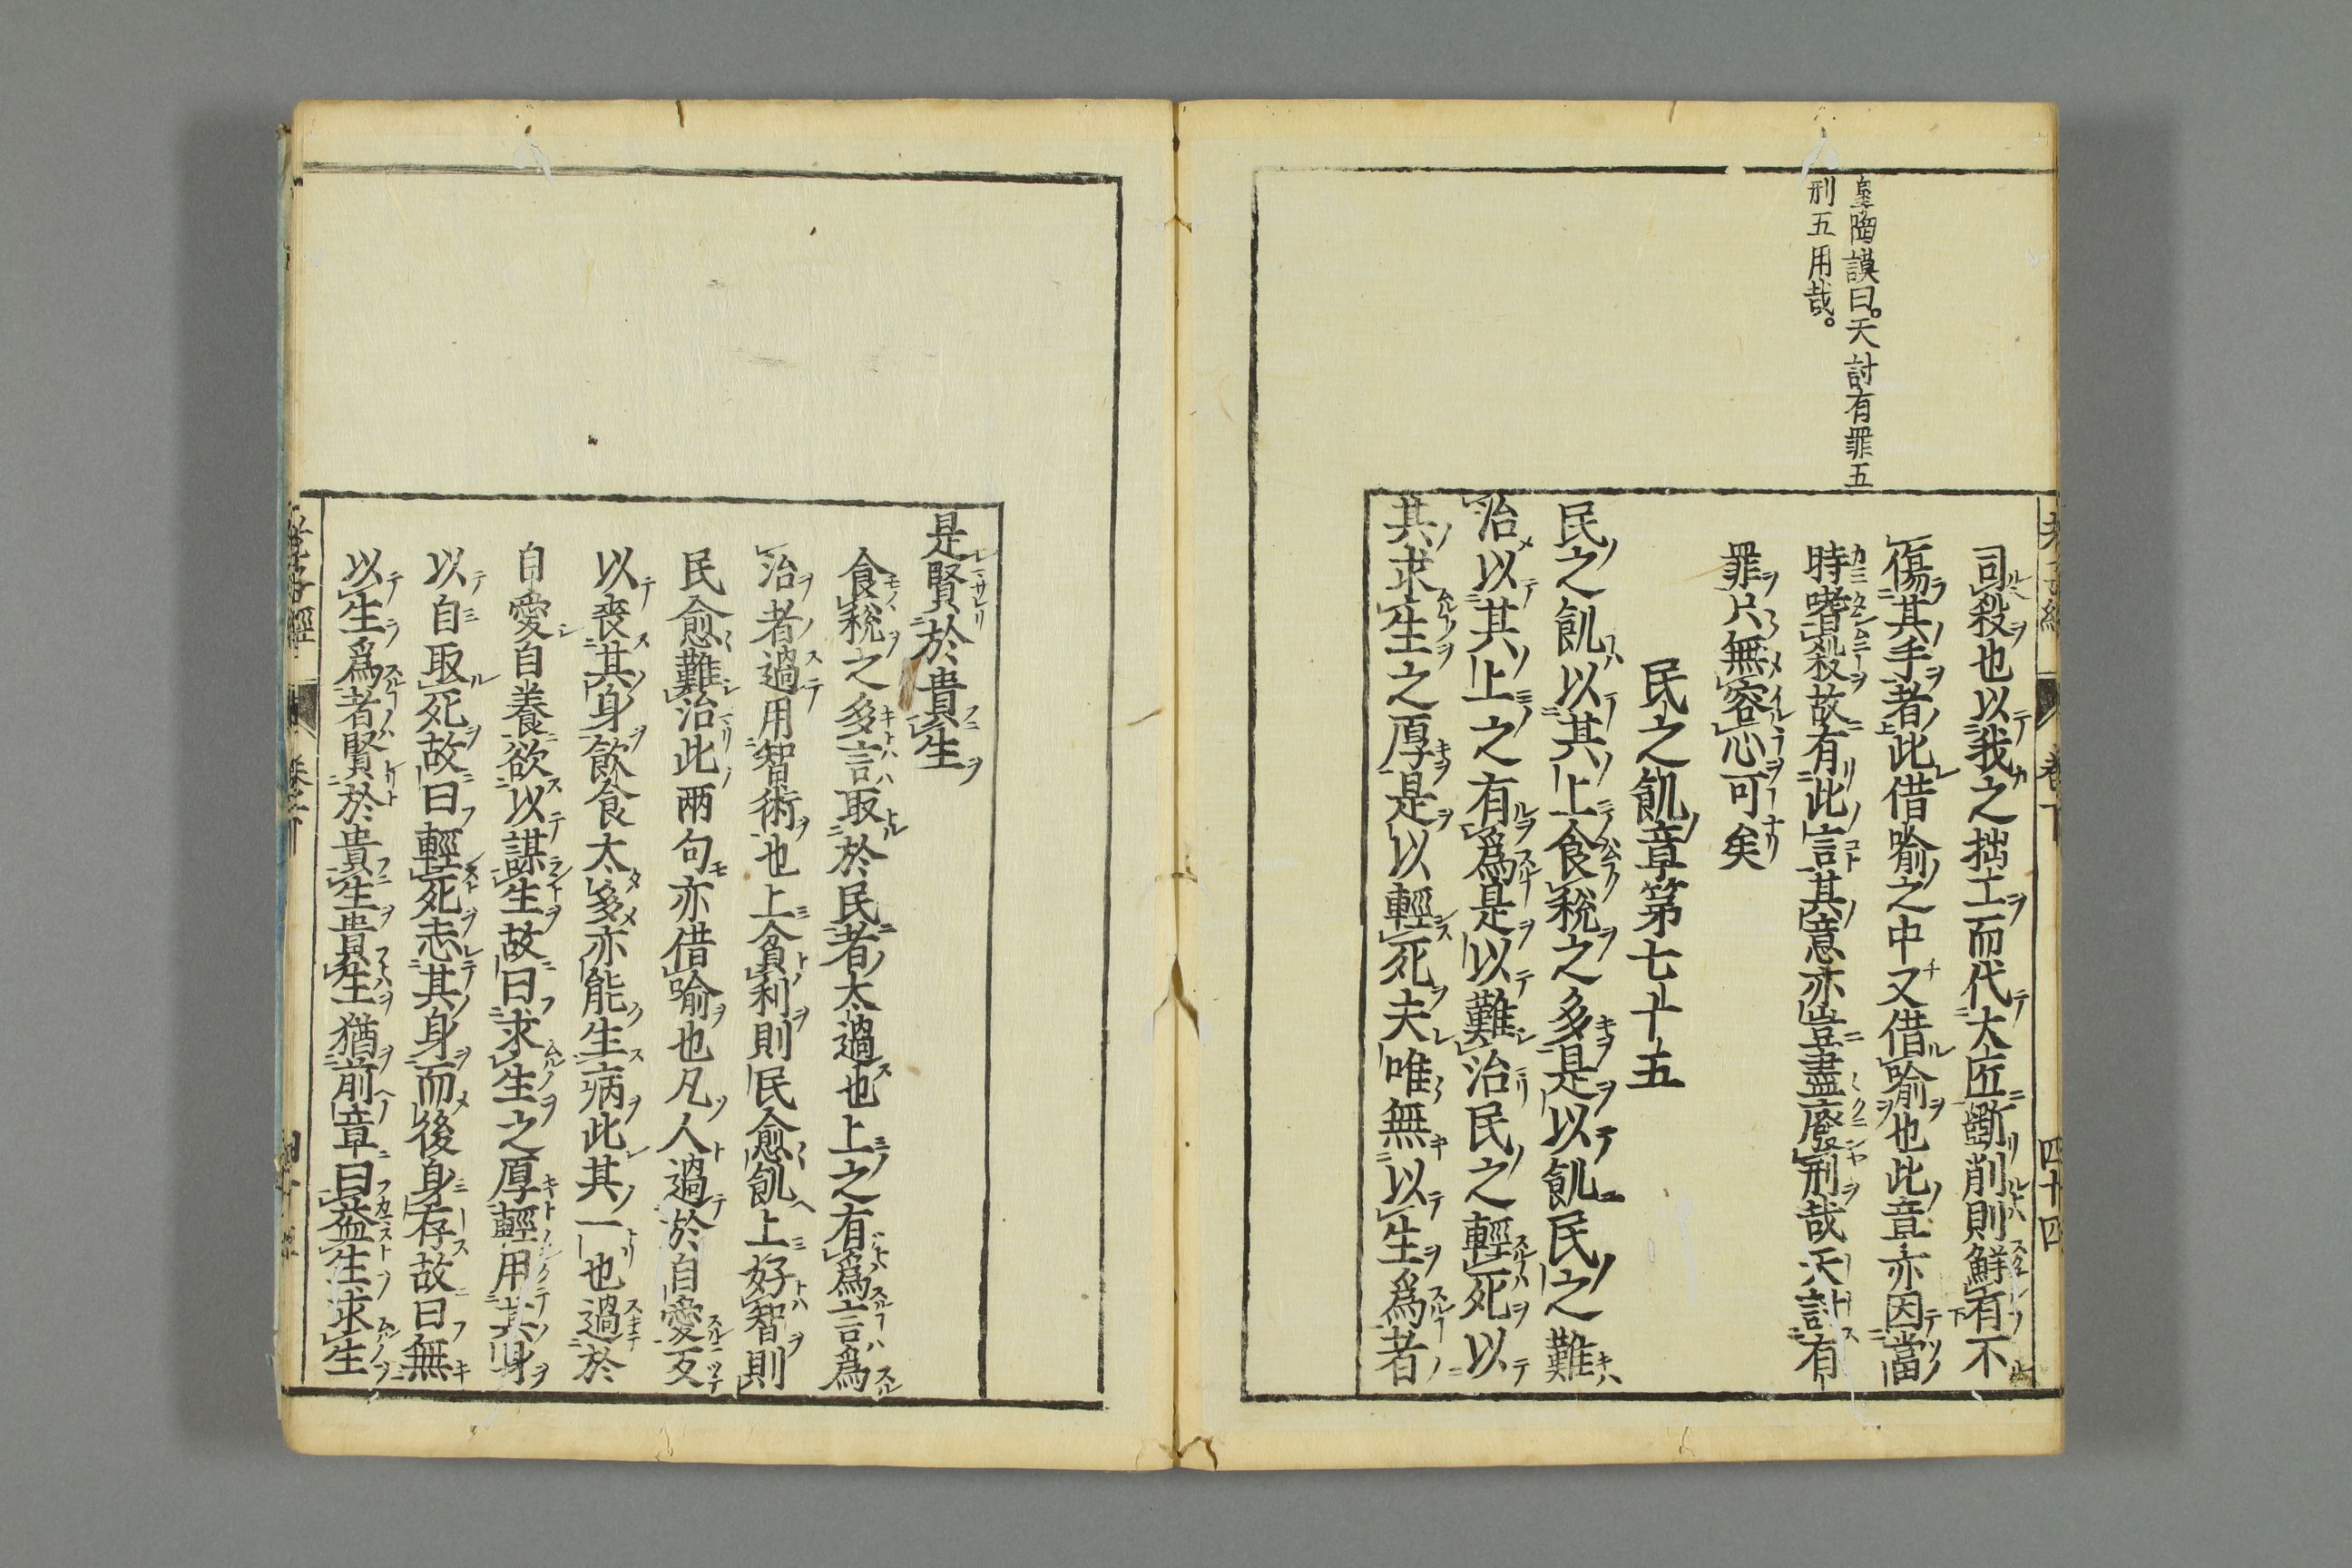 皐陶謨曰。天討有罪五
刑五用哉。
司殺也以我之拙工而代大匠斲削則鮮有不
傷其手者此借喻之中又借喻也此章亦因當
時嗜殺故有此言其意亦豈盡廢刑哉天討有
罪只無容心可矣
民之飢章第七十五
民之飢以其上食稅之多是以飢民之難
治以其上之有為是以難治民之輕死以
其求生之厚是以輕死夫唯無以生為者
是賢於貴生
食稅之多言取於民者太過也上之有為言為
治者過用智術也上貪利則民愈飢上好智則
民愈難治此兩句亦借喻也凡人過於自愛反
以喪其身飲食太多亦能生病此其一也過於
自愛自養欲以謀生故曰求生之厚輕用其身
以自取死故曰輕死志其身而後身存故曰無
以生為者賢於貴生貴生猶前章曰益生求生